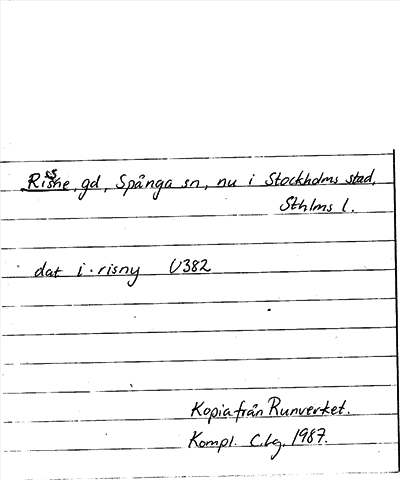 Rissne, gd, Spånga sn, nu i Stockholms stad,
Sthlms l.
dat i · risny U382
Kopia från Runverket.
Kompl. C.lg. 1987.